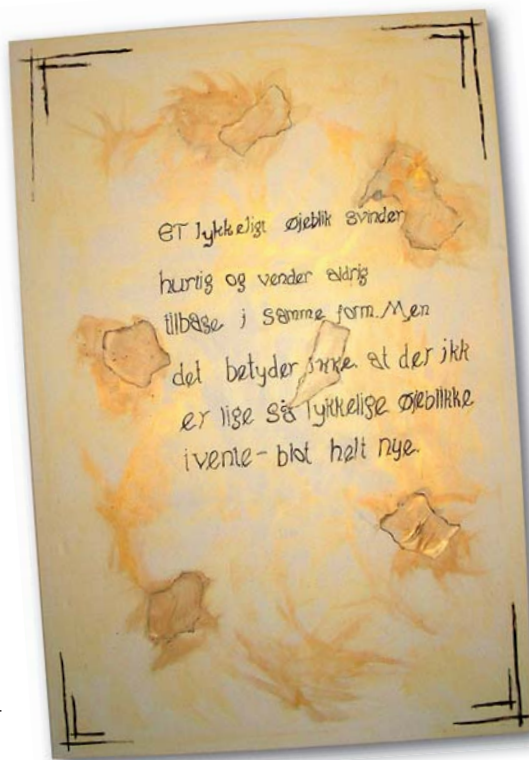 ET lykkeligt øjeblik svinder
hurtig og vender aldrig
tilbage i samme form. Men
det betyder ikke. at der ikk
er lige så lykkelige øjeblikke
ivente - blot helt nye.